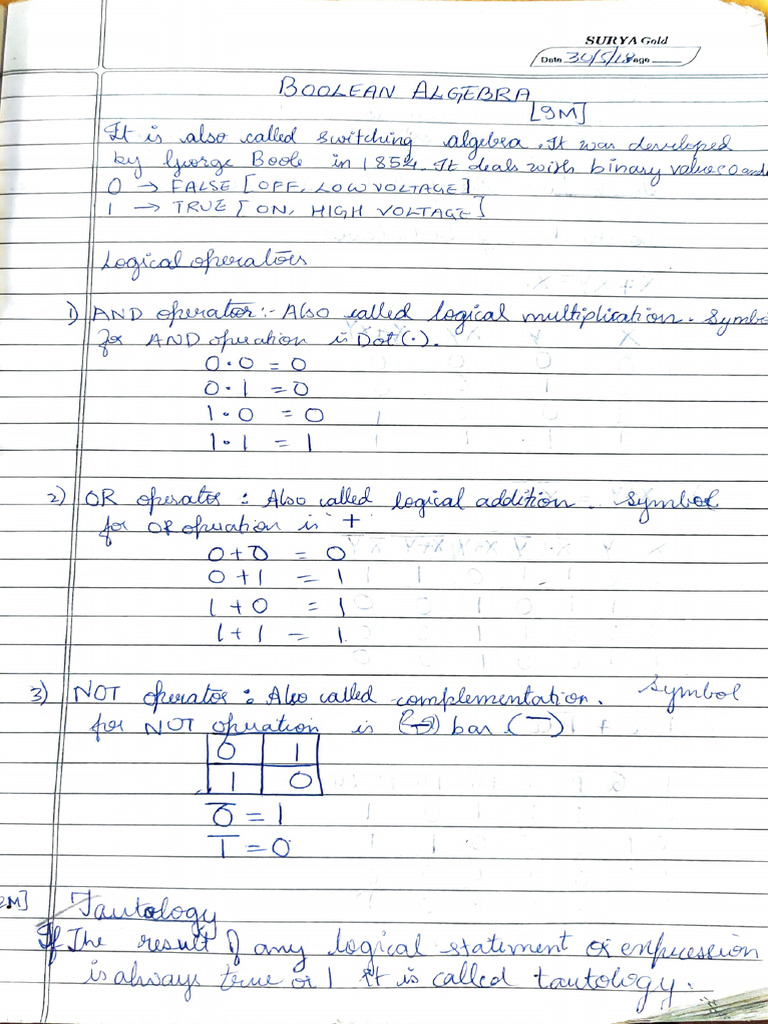 SURYA Gold
Date 30/5/18 age
BOOLEAN ALGEBRA
[9M]
It is also called switching algebra. It was developed
by George Boole in 1854. It deals with binary values 0 and
0 → FALSE [OFF, LOW VOLTAGE]
1 → TRUE [ON, HIGH VOLTAGE]
Logical operators
1) AND operator:- Also called logical multiplication. Symbo
for AND operation is Dot (·).
0·0 = 0
0·1 = 0
1·0 = 0
1·1 = 1
2) OR operator : Also called logical addition. Symbol
for OR operation is +
0+0 = 0
0+1 = 1
1+0 = 1
1+1 = 1.
3) NOT operator : Also called complementation. Symbol
for NOT operation is bar (¯)
0 1
1 0
0̅ = 1
1̅ = 0
2M] Tautology
If The result of any logical statement or expression
is always true or 1 it is called tautology.